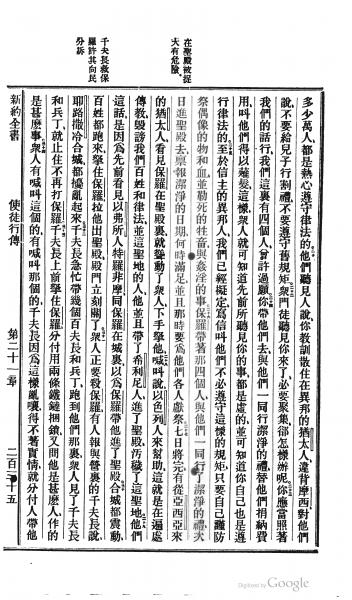 在聖殿被捉大有危險
千夫長救保羅許其向民分訴
多少萬人、都是熱心遵守律法的、他們聽見人說、你教訓散住在異邦的猶太人、違背摩西、對他們
說、不要給兒子行割禮、不要遵守舊規矩、衆門徒聽見你來了、必要聚集、卻怎樣辦呢、你應當照著
我們的話行、我們這裏有四個人、曾許過願、你帶他們去、與他們一同行潔淨的禮、替他們捐納費
用、叫他們得以薙髮、這樣、衆人就可知道先前所聽見你的事都是虛的、並可知道你自己也是遵
行律法的、至於信主的異邦人、我們已經擬定、寫信叫他們不必遵守這樣的規矩、只要自己謹防
祭偶像的物、和血、並勒死的牲畜、與姦淫的事、保羅帶著那四個人、與他們一同行了潔淨的禮、次
日進聖殿去、稟報潔淨的日期、何時滿足、並且那時要為他們各人獻祭、七日將完、有從亞西亞來
的猶太人、看見保羅在聖殿裏、就聳動了衆人、下手拏他、喊叫說、以色列人來幫助、這就是在遍處
傳教毀謗我們百姓和律法、並這聖地的人、他並且帶了希利尼人進了聖殿、汚穢了這聖地、他們
這話、是因為先前看見以弗所人特羅非摩、同保羅在城裏、以為保羅帶他進了聖殿、合城都震動、
百姓都跑來、拏住保羅、拉他出聖殿、殿門立刻關了、衆人正要殺保羅、有人報與營裏的千夫長說、
耶路撒冷合城都擾亂起來、千夫長急忙帶幾個百夫長和兵丁、跑到他們那裏、衆人見了千夫長
和兵丁、就止住不再打保羅、千夫長上前拏住保羅、分付用兩條鐵鏈捆鎖、又問他是甚麼人、作的
是甚麼事、衆人有喊叫這個的、有喊叫那個的、千夫長因為這樣亂嚷、得不著實情、就分付人帶他
新約全書 使徒行傳 第二十一章 二百三十五
Digitized by Google